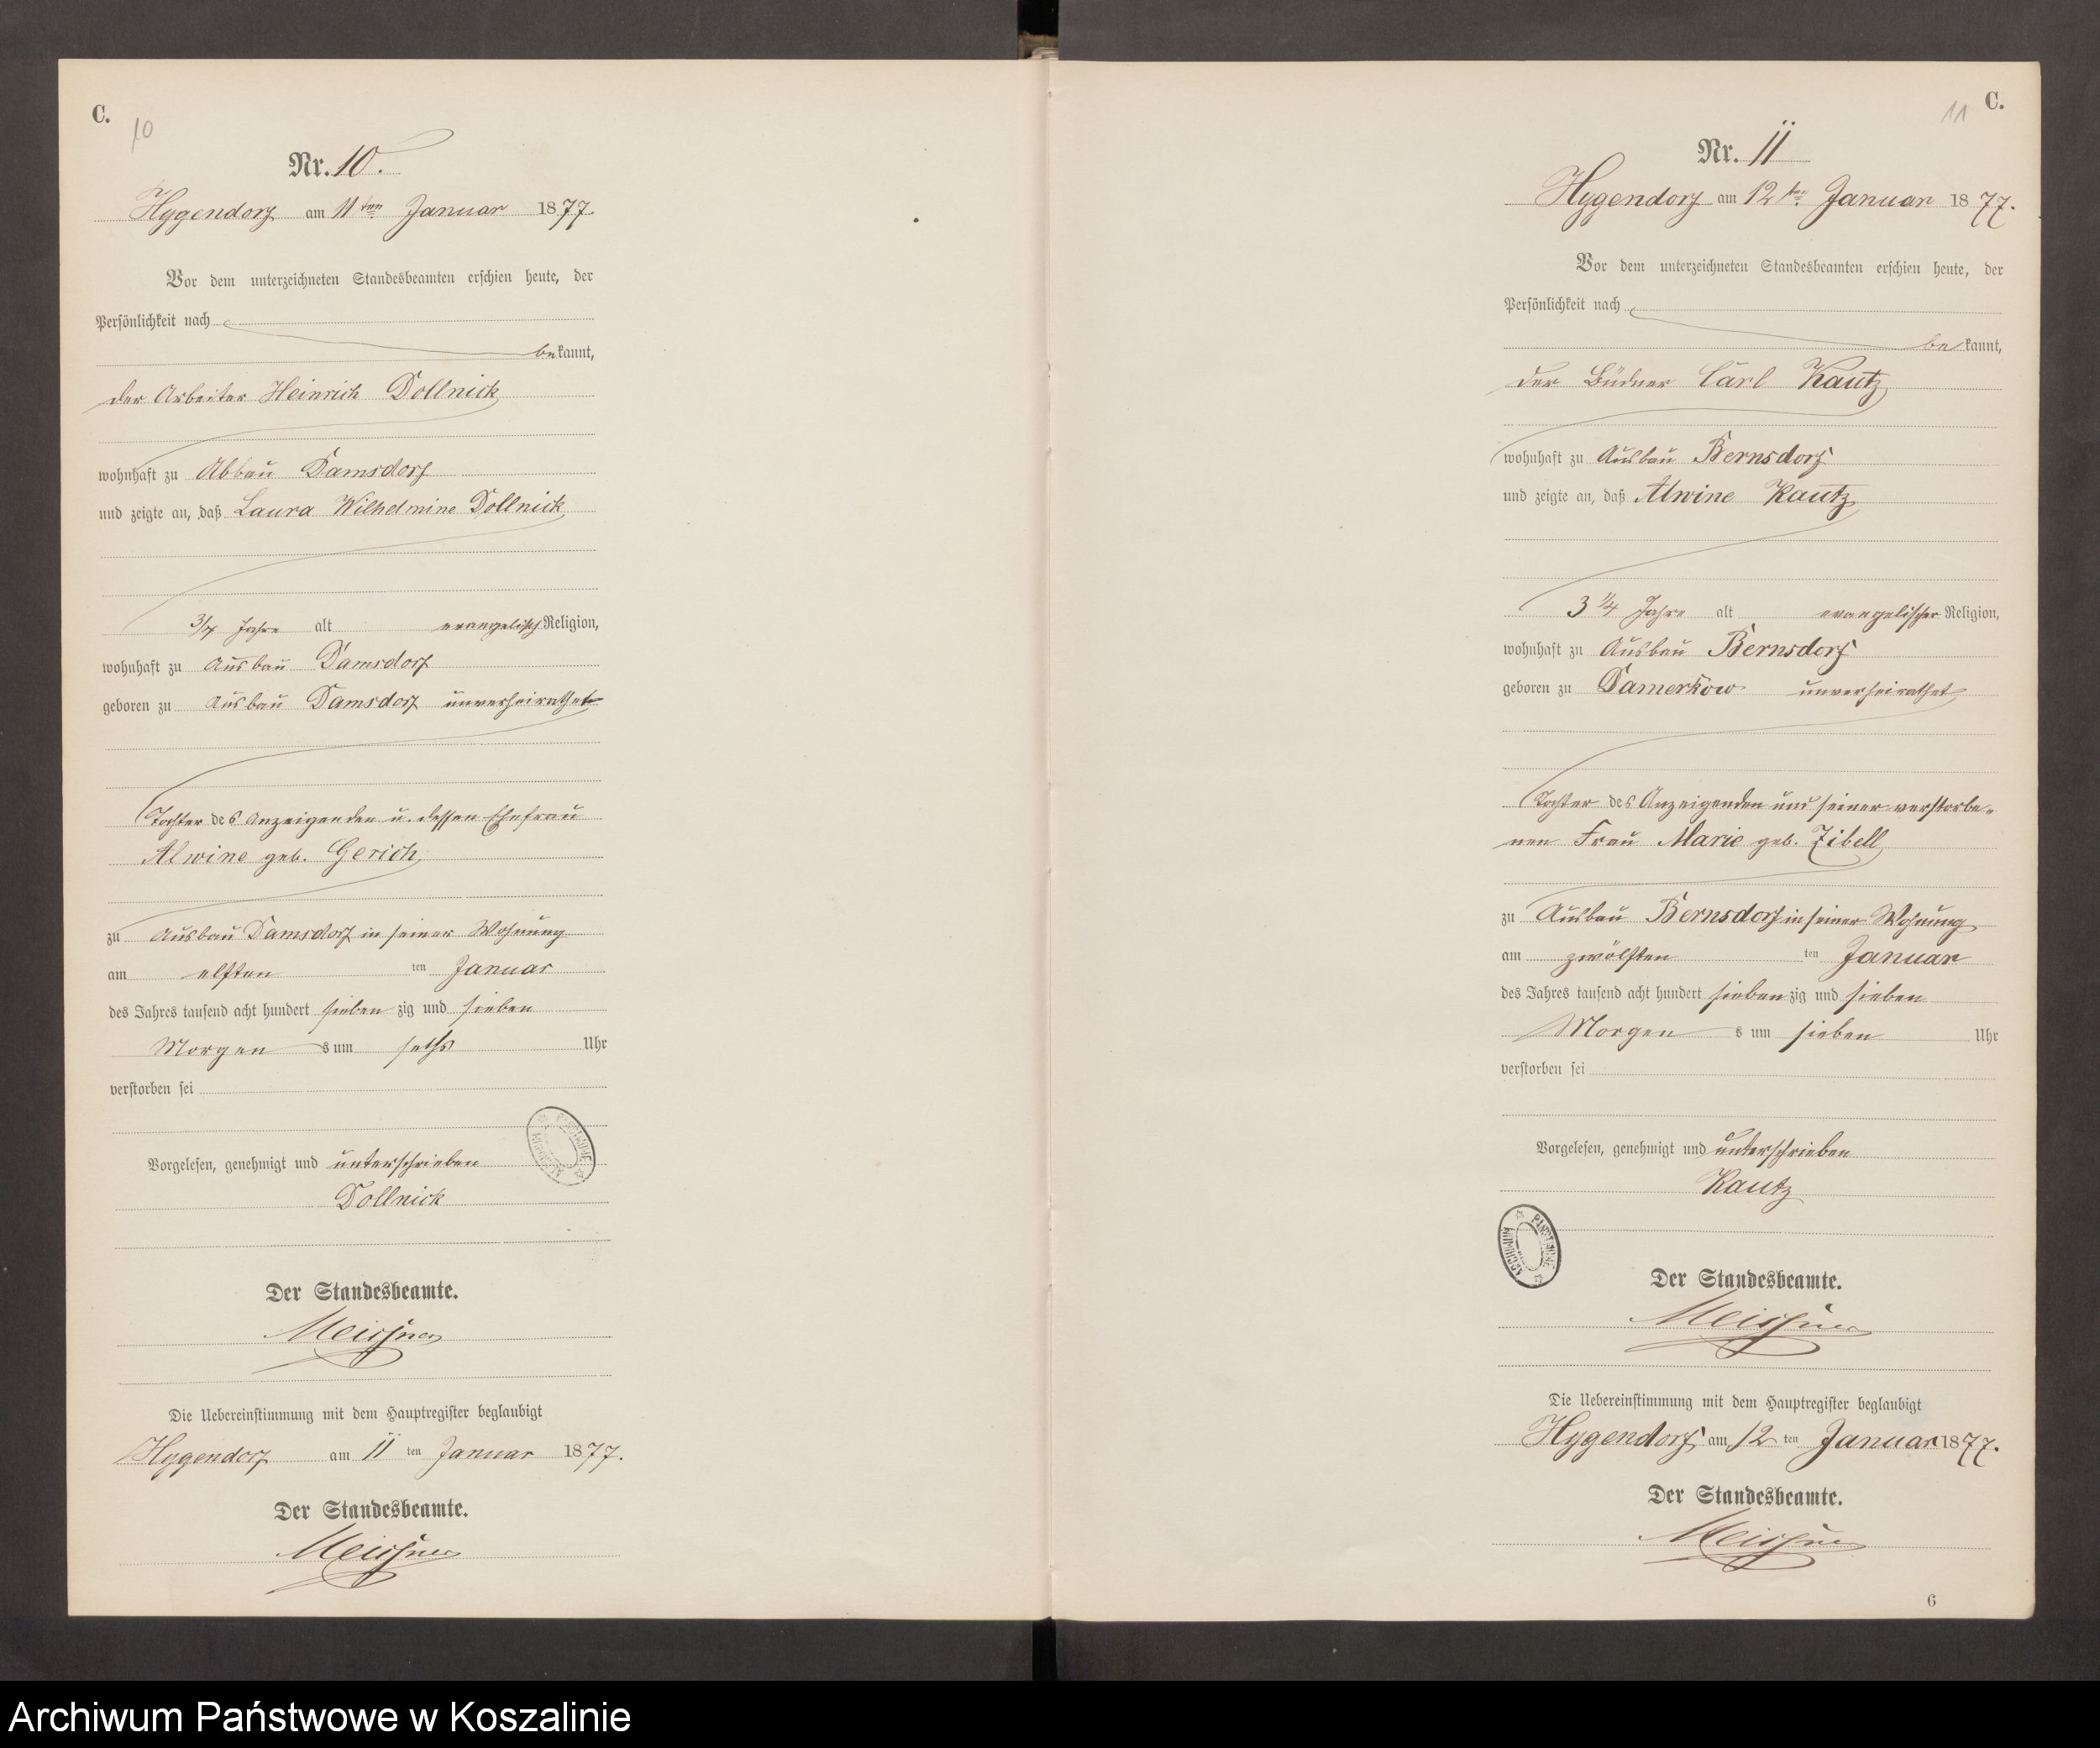 C.
10
Nr. 10.
Hygendorf am 11ten Januar 1877.
Vor dem unterzeichneten Standesbeamten erschien heute, der
Persönlichkeit nach
bekannt,
der Arbeiter Heinrich Dollnick
wohnhaft zu Abbau Damsdorf
und zeigte an, daß Laura Wilhelmine Dollnick
3/4 Jahre alt evangelisch Religion,
wohnhaft zu Ausbau Damsdorf
geboren zu Ausbau Damsdorf unverheirathet
Tochter des Anzeigenden u. dessen Ehefrau
Alwine geb. Gerich
zu Ausbau Damsdorf in seiner Wohnung
am elften ten Januar
des Jahres tausend acht hundert siebenzig und sieben
Morgens um sechs Uhr
verstorben sei
Vorgelesen, genehmigt und unterschrieben
Dollnick
Der Standesbeamte.
Meissner
Die Uebereinstimmung mit dem Hauptregister beglaubigt
Hygendorf am 11 ten Januar 1877.
Der Standesbeamte.
Meissner
11
C.
Nr. 11
Hygendorf am 12ten Januar 1877.
Vor dem unterzeichneten Standesbeamten erschien heute, der
Persönlichkeit nach
bekannt,
der Büdner Carl Kautz
wohnhaft zu Ausbau Bernsdorf
und zeigte an, daß Alwine Kautz
3 1/4 Jahre alt evangelischer Religion,
wohnhaft zu Ausbau Bernsdorf
geboren zu Damerkow unverheirathet
Tochter des Anzeigenden und seiner verstorbe-
nen Frau Marie geb. Zibell
zu Ausbau Bernsdorf in seiner Wohnung
am zwölften ten Januar
des Jahres tausend acht hundert siebenzig und sieben
Morgens um sieben Uhr
verstorben sei
Vorgelesen, genehmigt und unterschrieben
Kautz
ARCHIWUM PAŃSTWOWE
Der Standesbeamte.
Meissner
Die Uebereinstimmung mit dem Hauptregister beglaubigt
Hygendorf am 12 ten Januar 1877.
Der Standesbeamte.
Meissner
6
Archiwum Państwowe w Koszalinie